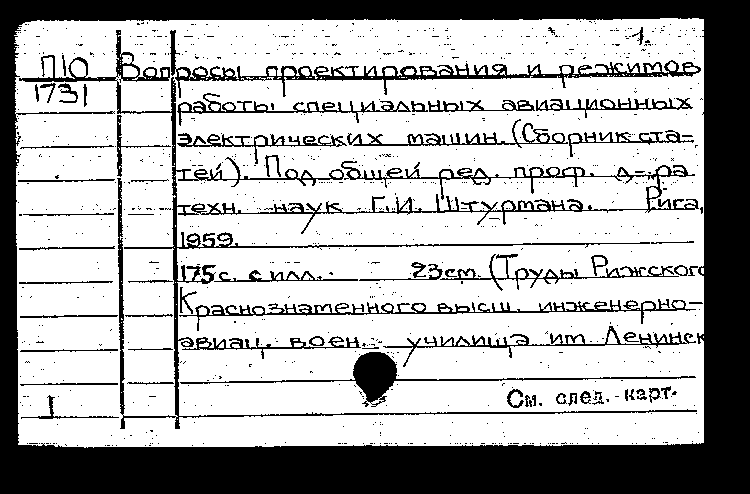 1.
П10 Вопросы проектирования и режимов
1731 работы специальных авиационных
электрических машин. (Сборник ста=
тей). Под общей ред. проф. д=ра
техн. наук Г.И. Штурмана. Рига,
1959.
175с. с илл. 23см. (Труды Рижского
Краснознаменного высш. инженерно-
авиац. воен. училища им Ленинск
1 См. след. карт.